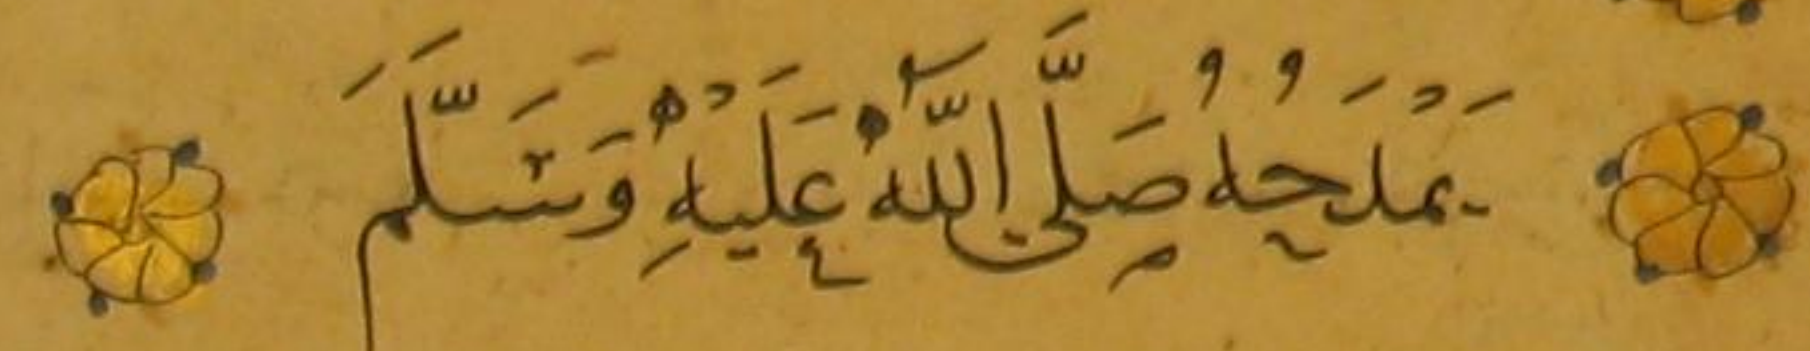 يَمْدَحُهُ صَلَّى اللَّهُ عَلَيْهِ وَسَلَّمَ